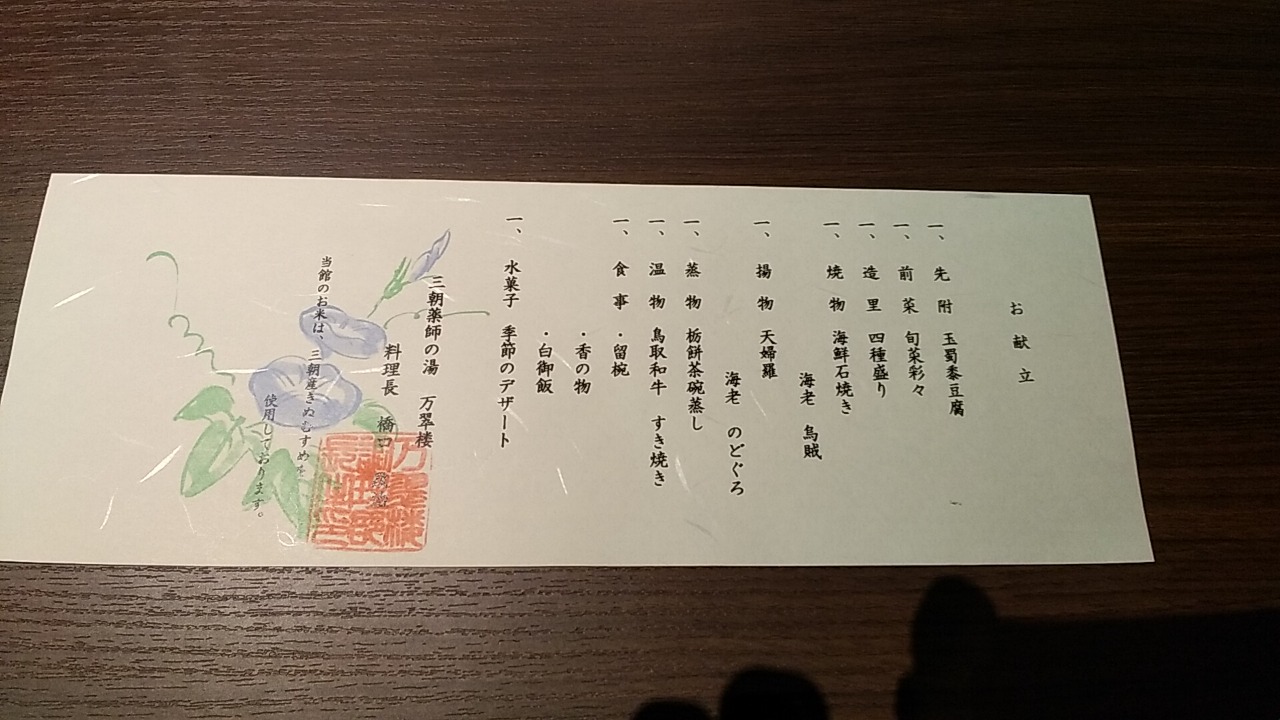 お献立
一、先附 玉蜀黍豆腐
一、前菜 旬菜彩々
一、造里 四種盛り
一、焼物 海鮮石焼き
海老 烏賊
一、揚物 天婦羅
海老 のどぐろ
一、蒸物 栃餅茶碗蒸し
一、温物 鳥取和牛 すき焼き
一、食事 ・留椀
・香の物
・白御飯
一、水菓子 季節のデザート
三朝薬師の湯 万翠楼
料理長 橋口
当館のお米は、三朝産きぬむすめを
使用しております。